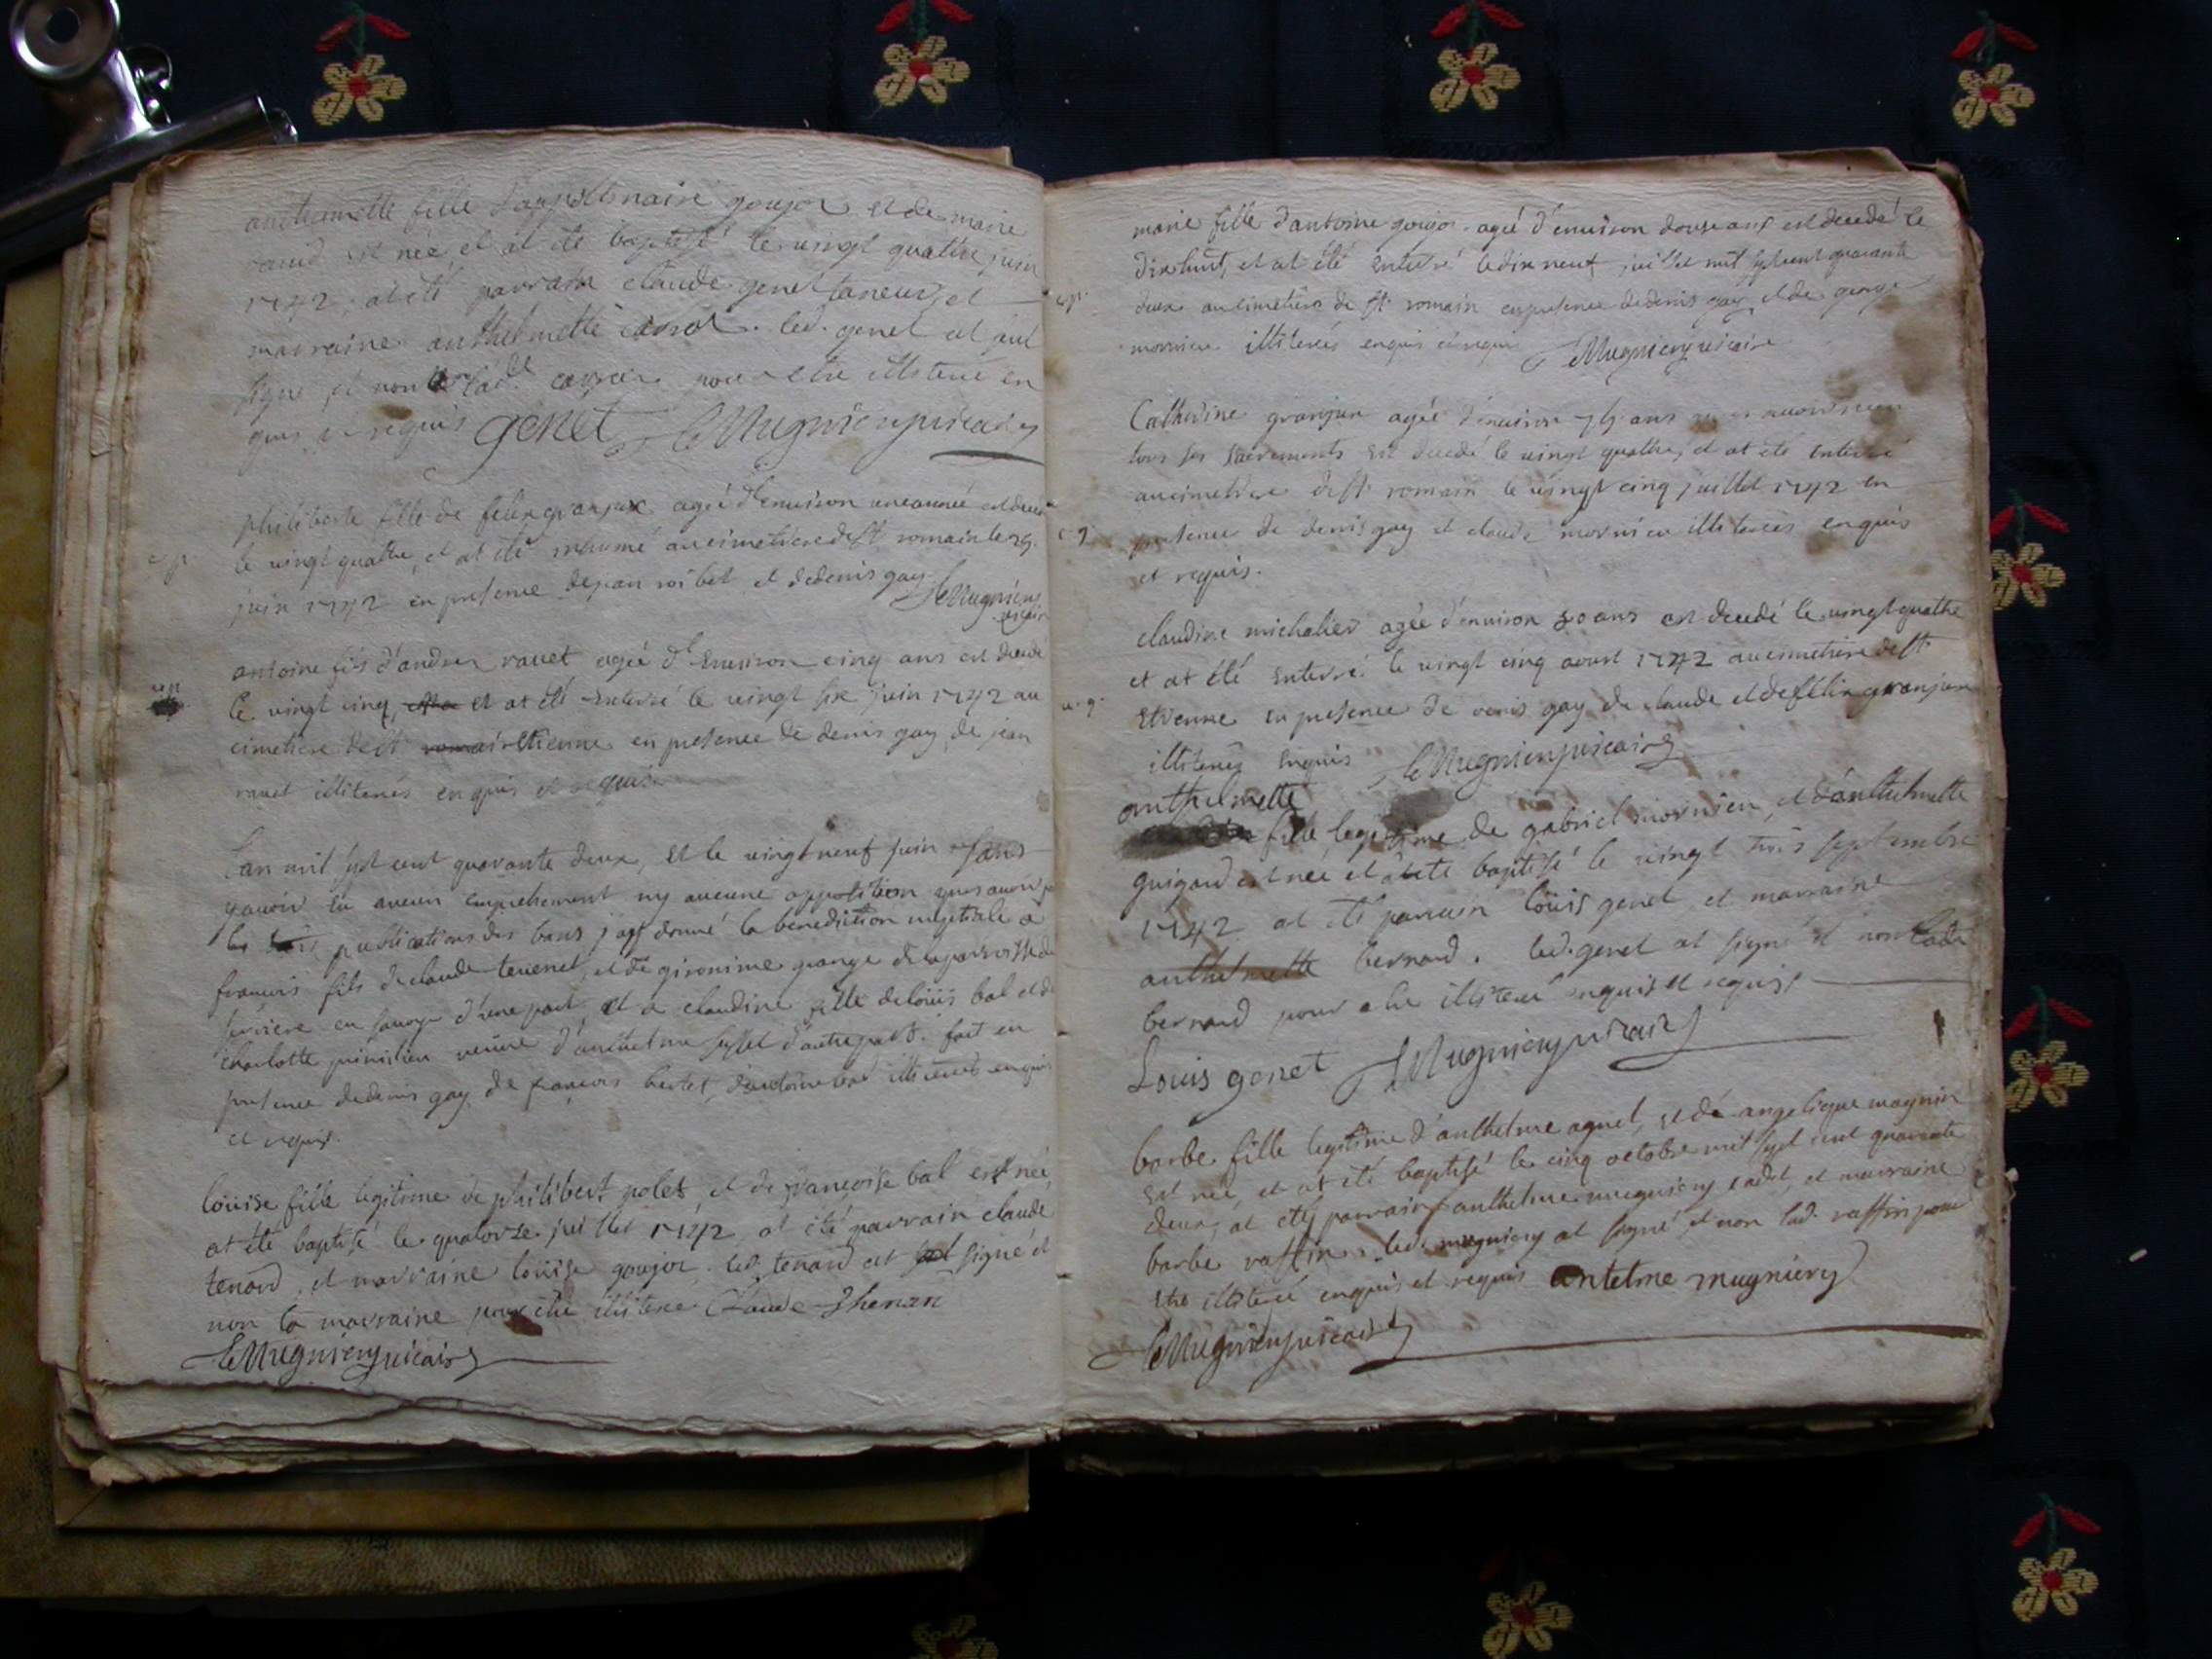 anthelmette fille d'appollinaire goujon et de marie
ravid est née et at été baptisé le vingt quatre juin
1742, at été parrain claude genet taneur, et
marraine anthelmette carrot. led. genet at aut
signé, et non lad. pour etre illiteré en
quis et requis genet Mugnieryvicaire
philiberte fille de felix granjux agée d'environ une année est decedé
le vingt quatre, et at été inhumé au cimetiere de st. romain le 25
c.p.
juin 1742 en presence de jean roibet et de denis gay Mugniery
vicaire
antoine fils d'andrea ravet agée d'environ cinq ans est decedé
le vingt cinq, et at été enterré le vingt six juin 1742 au
cimetiere de st etienne en presence de denis gay de jean
ravet illiterés enquis et requis
L'an mil sept cent quarante deux, et le vingt neuf juin sans
y avoir eu aucun empechement ny aucune opposition apres avoir
les publications des bans j'ay donné la benediction nuptiale a
françois fils de claude tevenet, et de gironime grange de la parroisse de
en savoye d'une part, et a claudine fille de loüis bal et de
charlotte veuve d'anthelme d'autre part. fait en
presence de denis gay de françois bertet, d'antoine bal illiterés enquis
et requis.
loüise fille legitime de philibert polet et de françoise bal est née,
at été baptisé le quatorze juillet 1742 at été parrain claude
tenard, et marraine loüise goujon. led. tenard at signé et
non la marraine pour etre illiteré Claude Thenan
Mugnieryvicaire
marie fille d'antoine goujon agée d'environ douse ans est decedé le
dix huit, et at été enterré le dix neuf juillet mil sept cent quarante
c.p.
deux au cimetiere de st. romain en presence de denis gay et de george
mornieu illiterés enquis et requis Mugnieryvicaire
Catherine granjux agée d'environ 75 ans apres avoir receu
tous ses sacrements est decedé le vingt quatre, et at été enterré
au cimetiere de st. romain le vingt cinq juillet 1742 en
c.g.
presence de denis gay et claude mornieu illiterés enquis
et requis.
claudine michalier agée d'environ 30 ans est decedé le vingt quatre
et at été enterré le vingt cinq aoust 1742 au cimetiere de st.
etienne en presence de denis gay de claude et de felix granjux
illiterés enquis Mugnieryvicaire
anthelmette
fille legitime de gabriel mornieu, et d'anthelmette
guigard est née et at été baptisé le vingt trois septembre
1742 at été parrain loüis genet et marraine
anthelmette bernard. led. genet at signé et non lad.
bernard pour etre illiteré enquis et requis
Louis genet Mugnieryvicaire
barbe fille legitime d'anthelme aguet, et de angelique magnin
est née, et at été baptisé le cinq octobre mil sept cent quarante
deux, at été parrain anthelme mugniery cadet, et marraine
barbe raffin. led. mugniery at signé, et non lad. raffin pour
etre illiteré enquis et requis antelme mugniery
Mugnieryvicaire